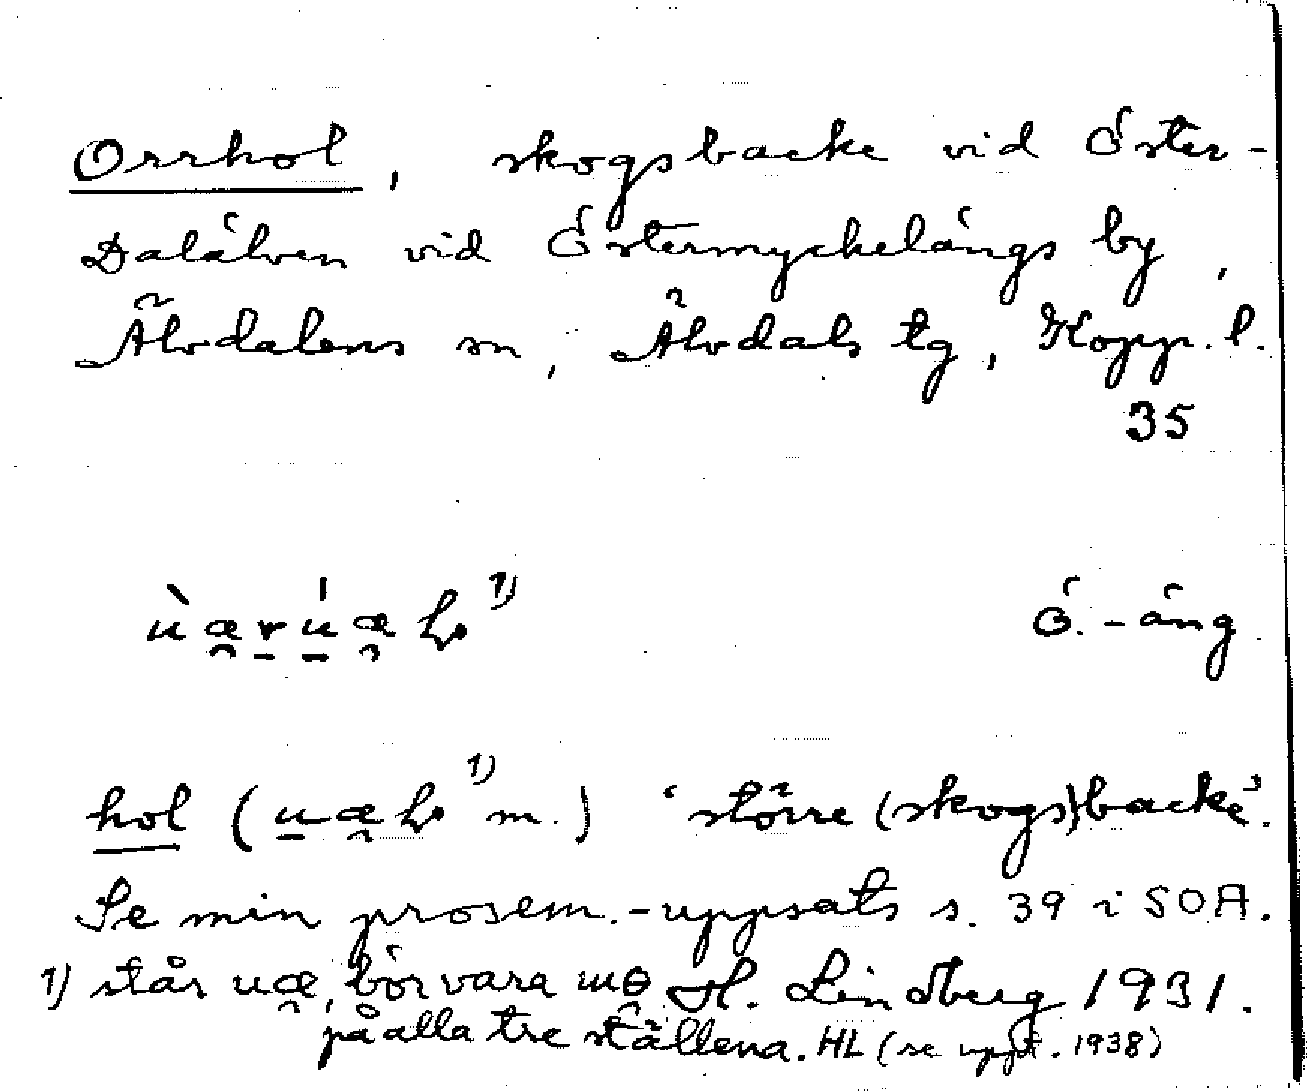 Orrhol, skogsbacke vid Öster-
Dalälven vid Östermyckelängs by,
Älvdalens sn, Älvdals tg, Kopp. l.
35
1) Ö.-äng
hol ( 1) m.) 'större (skogs)backe'.
Se min prosem.-uppsats s. 39 i SOA.
1) står uæ̯, bör vara H. Lindberg 1931.
på alla tre ställena. HL (se uppt. 1938)